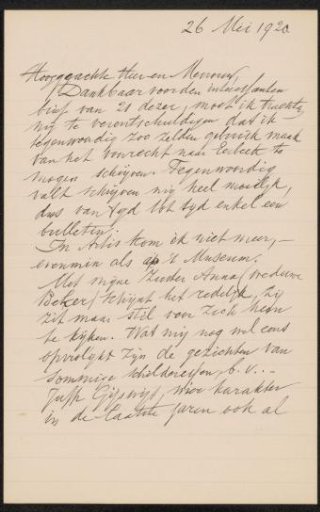 26 Mei 1920
Hooggeachte Heer en Mevrouw,
Dankbaar voor den interessanten
brief van 21 dezer, moet ik trachten
mij te verontschuldigen dat ik
tegenwoordig zoo zelden gebruik maak
van het voorrecht naar Eerbeek te
mogen schrijven. Tegenwoordig
valt schrijven mij heel moeilijk,
dus van tyd tot tyd enkel een
bulletin;
In Artis kom ik niet meer, —
evenmin als op 't Museum.
Met mijne Zuster Anna (weduwe
Beker) schijnt het redelijk, zij
zit maar stil voor zich heen
te kijken. Wat mij nog wel eens
opvrolijkt zijn de gezichten van
sommige schilderessen, b.v. —
Juffr. Gijswijt, wier karakter
in de laatste jaren ook al